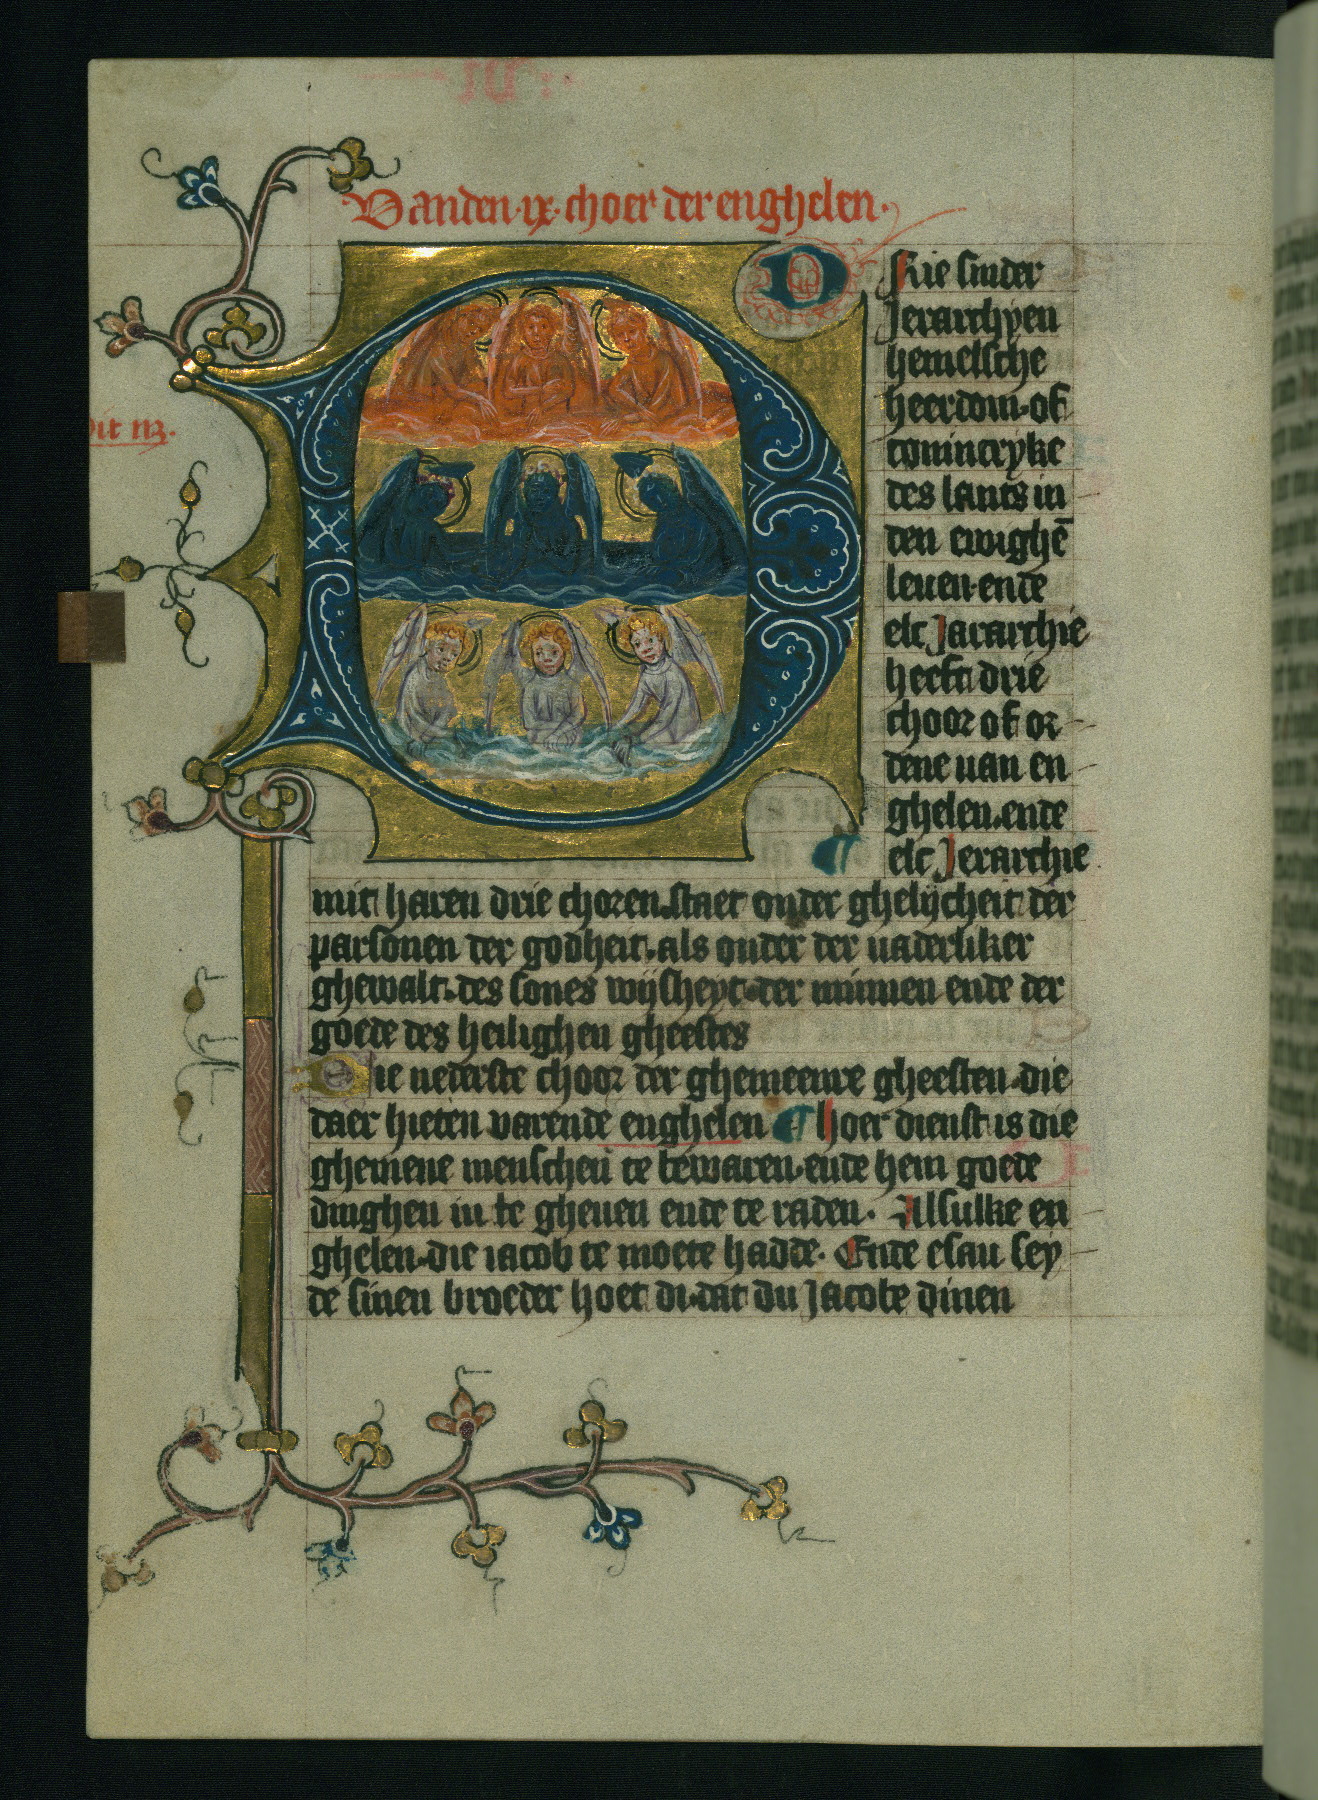 Vanden ix choer der enghelen.
Drie sinder
Jerarchyen
hemelsche
heerdom of
conincryke
des lants in
den ewighē
leuen ende
elc Jararchie
heeft drie
choor of or
dene uan en
ghelen. ende
¶ elc Jerarchie
mit haren drie choren. staet onder ghelijcheit der
parsonen der godheit. als onder der uaderliker
ghewalt. des sones wijsheyt. der minnen ende der
goede des heilighen gheestes
Die nederste choor der ghemeenre gheesten die
daer hieten varende enghelen ¶ hoer dienst is die
ghemene menschen te bewaren. ende hem goede
dinghen in te gheuen ende te raden. Alsulke en
ghelen. die iacob te moete hadde. Ende esau sey
de sinen broeder hoet di. dat du Jacobe dinen